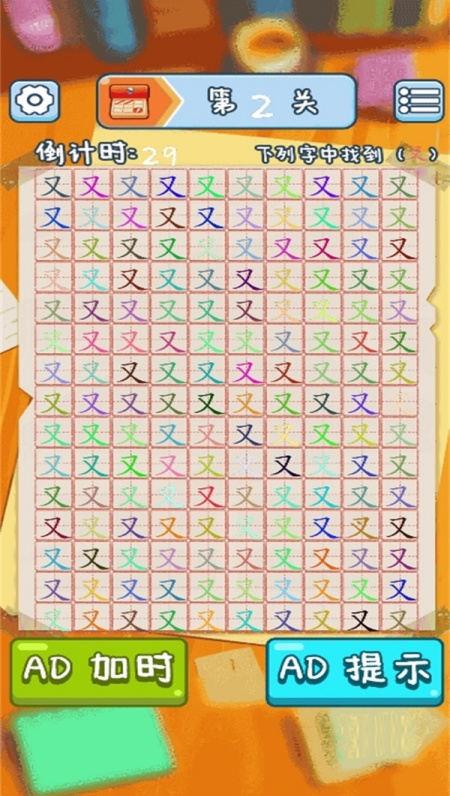 第2关
倒计时:29
下列字中找到（ ）
又又又又又又又又又又
又又又又又又又又又又
又又又又又又又又又又
又又又又又又又又又又
又又又又又又又又又又
又又又又又又又又又又
又又又又又又又又又又
又又又又又又又又又
又又又又又又又又又又
又又又又又又又又又
又又又又又又又又又又
又又又又又又又又又又
又又又又又又又又又又
又又又又又又又又又又
又又又又又又又又又又
AD 加时
AD 提示